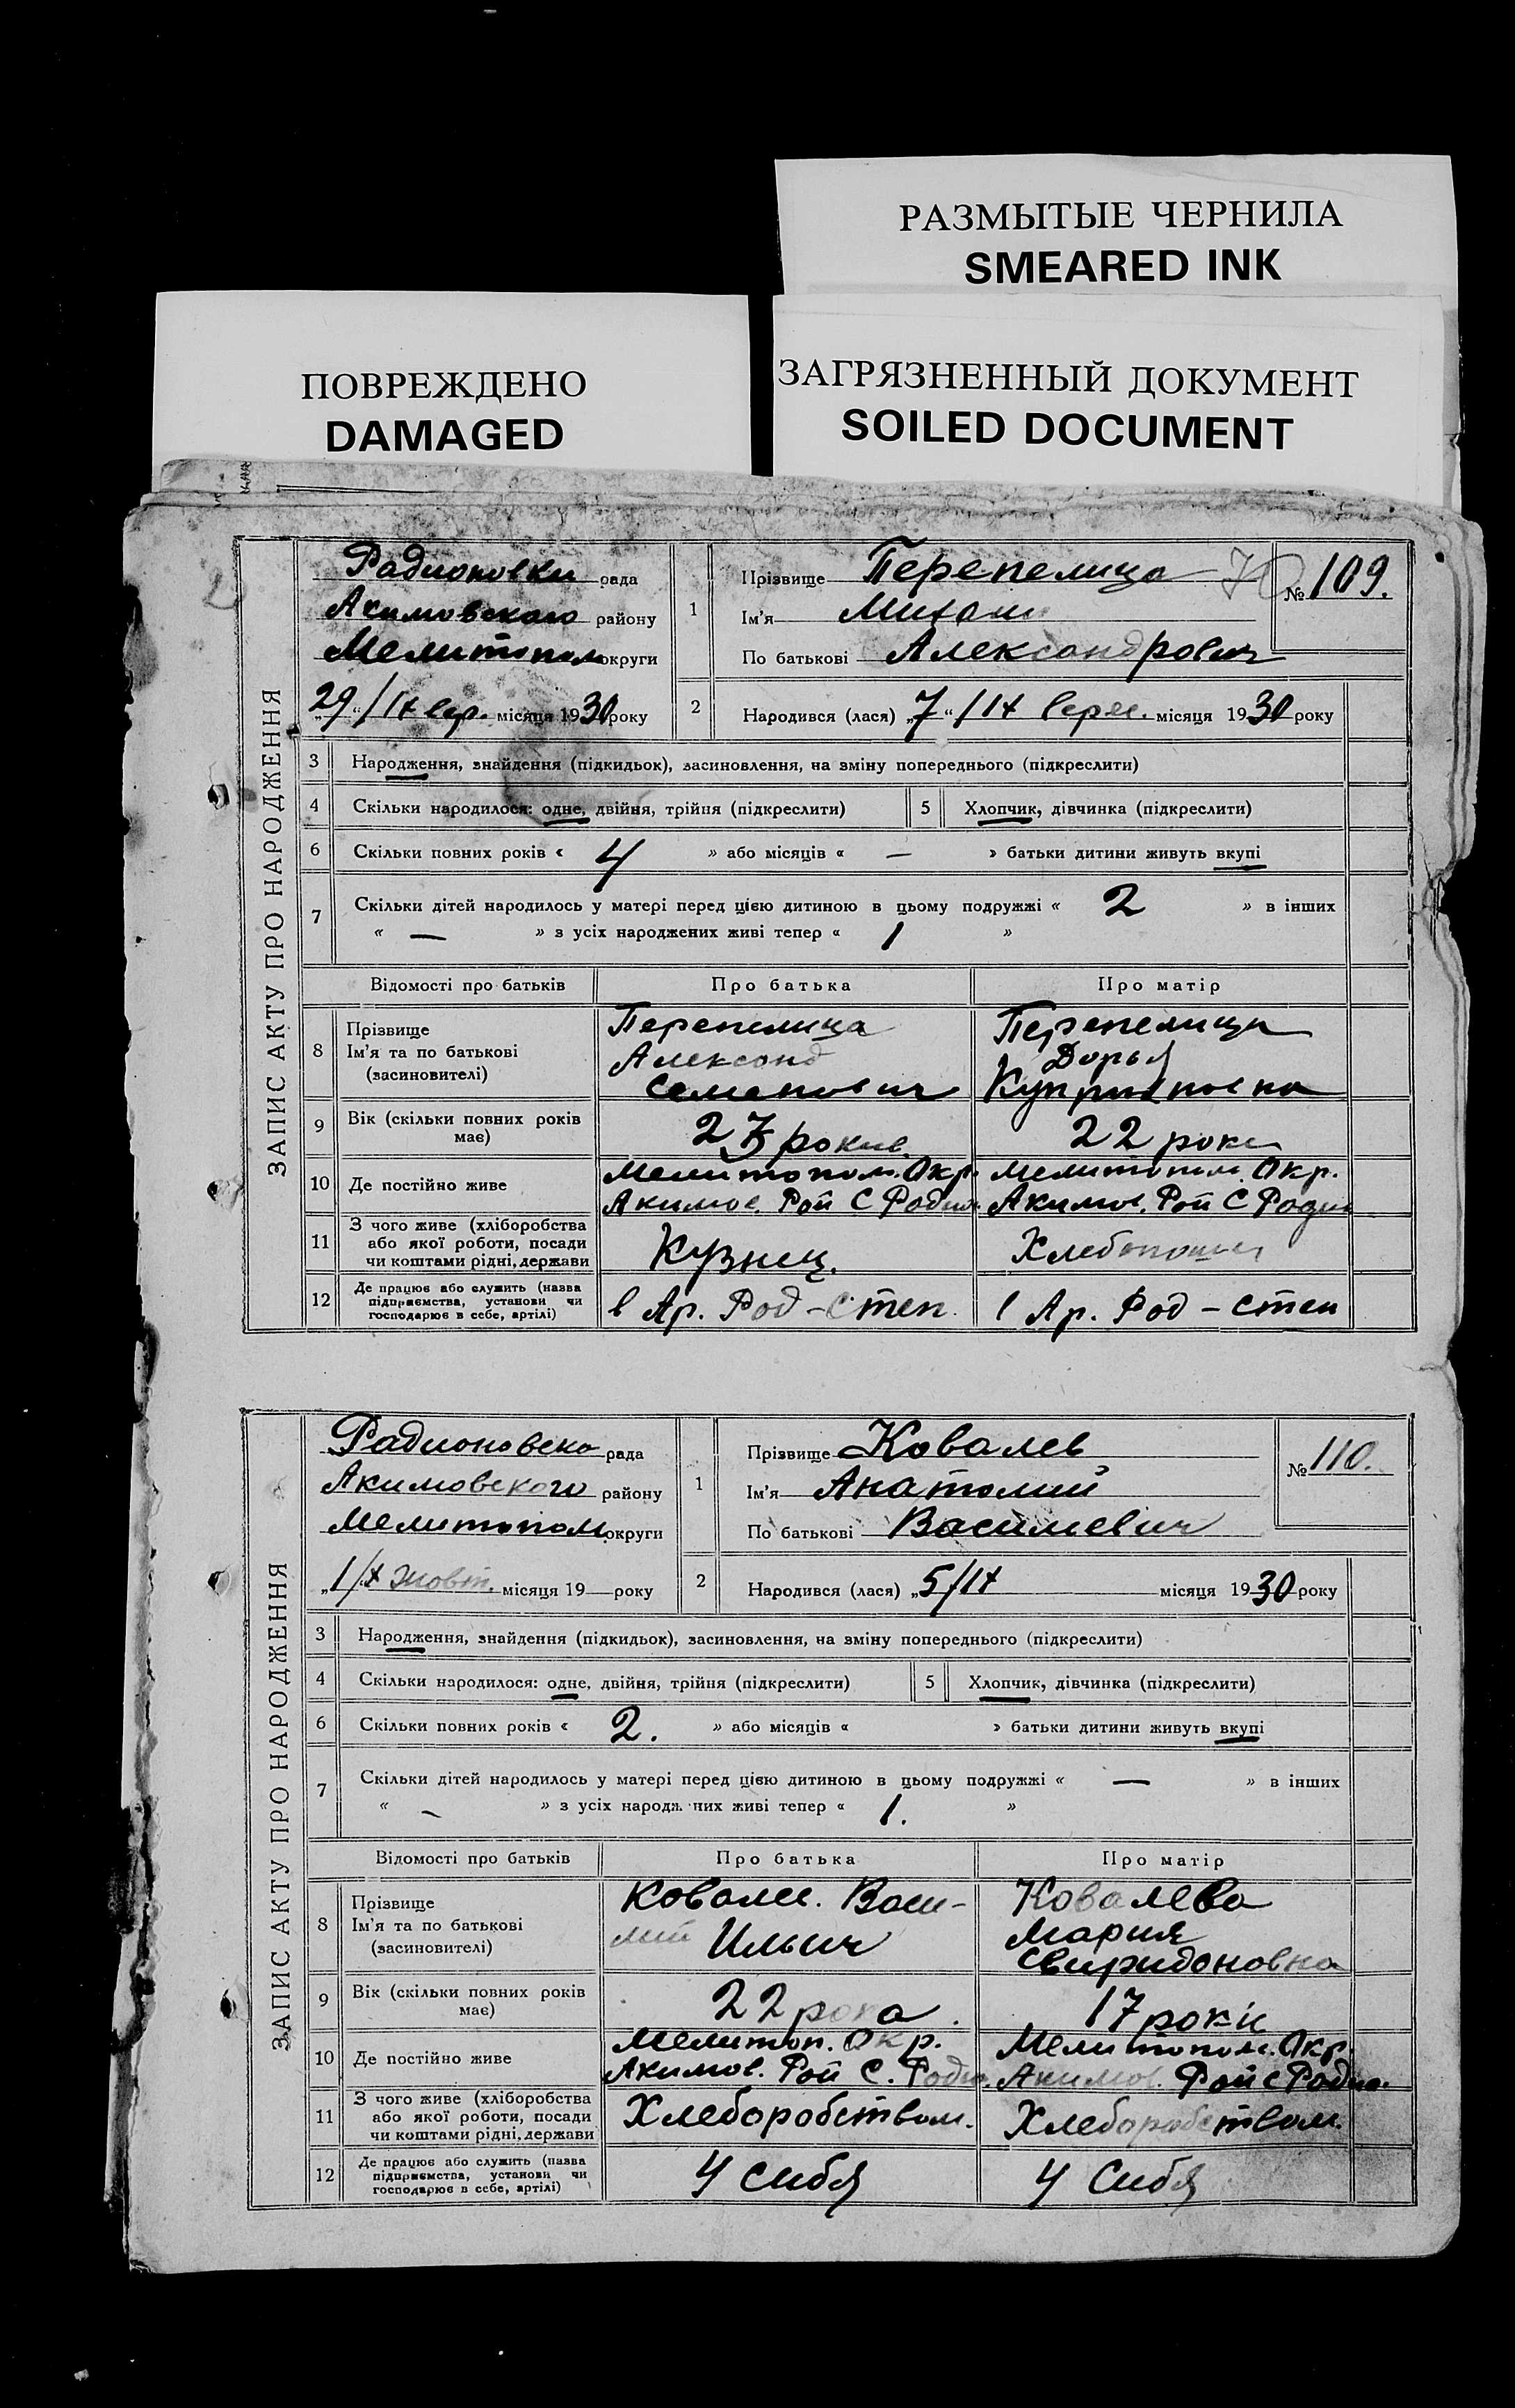 РАЗМЫТЫЕ ЧЕРНИЛА
SMEARED INK
ПОВРЕЖДЕНО
DAMAGED
ЗАГРЯЗНЕННЫЙ ДОКУМЕНТ
SOILED DOCUMENT
ЗАПИС АКТУ ПРО НАРОДЖЕННЯ
Радионовки рада
Акимовского району
Мелитопол округи
„29“/IX вер. місяця 1930 року
1 Прізвище Перепелица
№ 109.
Ім'я Михаил
По батькові Александрович
2 Народився (лася) „7“/IX верес. місяця 1930 року
3 Народження, знайдення (підкидьок), засиновлення, на зміну попереднього (підкреслити)
4 Скільки народилося: одне, двійня, трійня (підкреслити) 5 Хлопчик, дівчинка (підкреслити)
6 Скільки повних років « 4 » або місяців « — » батьки дитини живуть вкупі
7 Скільки дітей народилось у матері перед цією дитиною в цьому подружжі « 2 » в інших
« — » з усіх народжених живі тепер « 1 »
Відомості про батьків Про батька Про матір
8 Прізвище
Ім'я та по батькові
(засиновителі)
Перепелица
Александ
Семенович
Перепелица
Дарья
9 Вік (скільки повних років
має)
27 рокив.
22 роки
10 Де постійно живе
Мелитопол. Окр.
Акимов. Рай С Радион.
Мелитопол. Окр.
Акимов. Рай С Радио
11 З чого живе (хліборобства
або якої роботи, посади
чи коштами рідні, держави
Кузнец.
12 Де працює або служить (назва
підприємства, установи чи
господарює в себе, артілі)
в Ар. Род – степ.
в Ар. Род – степ
ЗАПИС АКТУ ПРО НАРОДЖЕННЯ
Радионовско рада
Акимовского району
Мелитопол округи
„1/X жовт. місяця 19— року
1 Прізвище Ковалев
№ 110.
Ім'я Анатолий
По батькові Василиевич
2 Народився (лася) „5/IX місяця 1930 року
3 Народження, знайдення (підкидьок), засиновлення, на зміну попереднього (підкреслити)
4 Скільки народилося: одне, двійня, трійня (підкреслити) 5 Хлопчик, дівчинка (підкреслити)
6 Скільки повних років « 2. » або місяців « » батьки дитини живуть вкупі
7 Скільки дітей народилось у матері перед цією дитиною в цьому подружжі « — » в інших
« — » з усіх народж них живі тепер « 1. »
Відомості про батьків Про батька Про матір
8 Прізвище
Ім'я та по батькові
(засиновителі)
Ковалев. Васи-
лий Ильич
Ковалева
Мария
Свиридоновна
9 Вік (скільки повних років
має)
22 рока.
17 роки
10 Де постійно живе
Мелитоп. Окр.
Акимов. Рай С. Радио.
Мелитопол. Окр.
Акимов. Рай С Радио.
11 З чого живе (хліборобства
або якої роботи, посади
чи коштами рідні, держави
Хлеборобством.
Хлеборобством.
12 Де працює або служить (назва
підприємства, установи чи
господарює в себе, артілі)
У Сибя
У Сибя